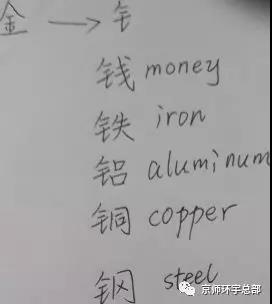 金 → 钅
钱 money
铁 iron
铝 aluminum
铜 copper
钢 steel
京师环宇总部